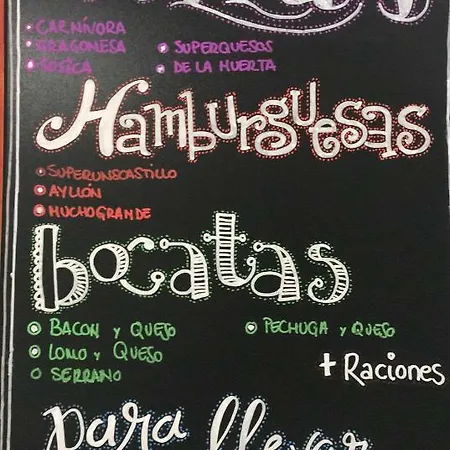 • CARNÍVORA
• ARAGONESA • SUPERQUESOS
• BÁSICA • DE LA HUERTA
Hamburguesas
• SUPERUNCASTILLO
• AYLLÓN
• MUCHOGRANDE
bocatas
• BACON y QUESO • PECHUGA y QUESO
• LOMO y QUESO
O SERRANO
+ Raciones
para llevar